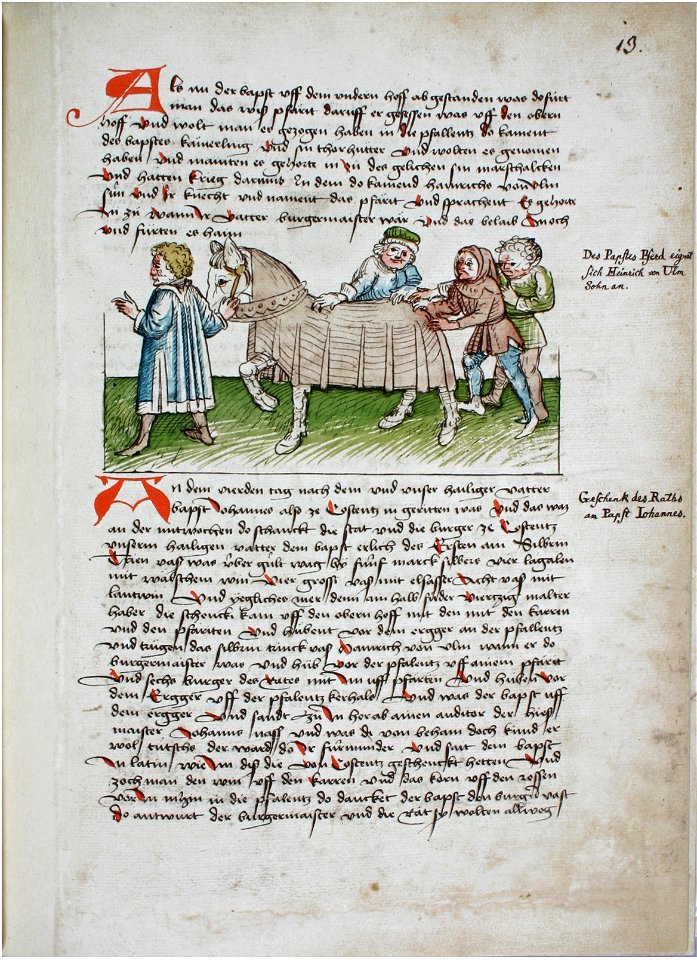 19.
Als nu der bapst uff dem undern hoff abgestanden was do fůrt
man das wiß pfärit daruff er gesessen was uff den obern
hoff Und wolt man es gezogen haben in die pfallentz do kament
des bapstes kamerling Und sin thorhutter Und wolten es genomen
haben Und mainten es gehorte in zů des gelichen sin marschalcken
Und hatten krieg darumb In dem do kament hainrichs von Ulm
sůn und sir knecht und nament das pfärit Und sprachent Es gehorte
In zů wann Ir vatter burgermaister wär Und das belaib dennoch
Und fůrten es haim
Des Papstes Pferd eignet
sich Heinrich von Ulm
Sohn an.
An dem vierden tag nach dem und unser hailiger vatter
bapst Johannes also ze Costentz in geritten was Und das was
an der mitwochen do schanckt die stat und die burger ze Costentz
unserm hailigen vatter dem bapst erlich des Ersten ain Silbrin
trinckvas was über gült wag by fünff marck silbers vier lagalen
mit wälschem win Vier gross vas mit elsasser Acht vas mit
lantwin Und yegliches mer denn ain halb fůder viertzig malter
haber die schencki kam uff den obern hoff mit den karren
und den pfäriten Und hübent vor dem ergger an der pfallentz
und trůgen das silbrin trinck vas Hainrich von Ulm wann er do
burgermaister was und hüb vor der pfalentz uff ainem pfärit
Und sechs burger des Rates mit Im uff pfärten Und huben vor
dem Ergger uff der pfalentz kerhals Und was der bapst uff
dem ergger Und sandt zů In herab ainen auditor der hiess
maister Johannes nass und was de von behem doch kund er
wol tutsche der ward do Ir fürmünder Und sait dem bapst
In latin wie Im diß die von Costentz geschenckt hetten Und
zoch man den win uff den karren Und das korn uff den rossen
vor In umhin in die pfalentz do dancket der bapst den burgern vast
do antwurt der burgermaister und die Rät sy wolten allweg
Geschenk des Raths
an Papst Iohannes.